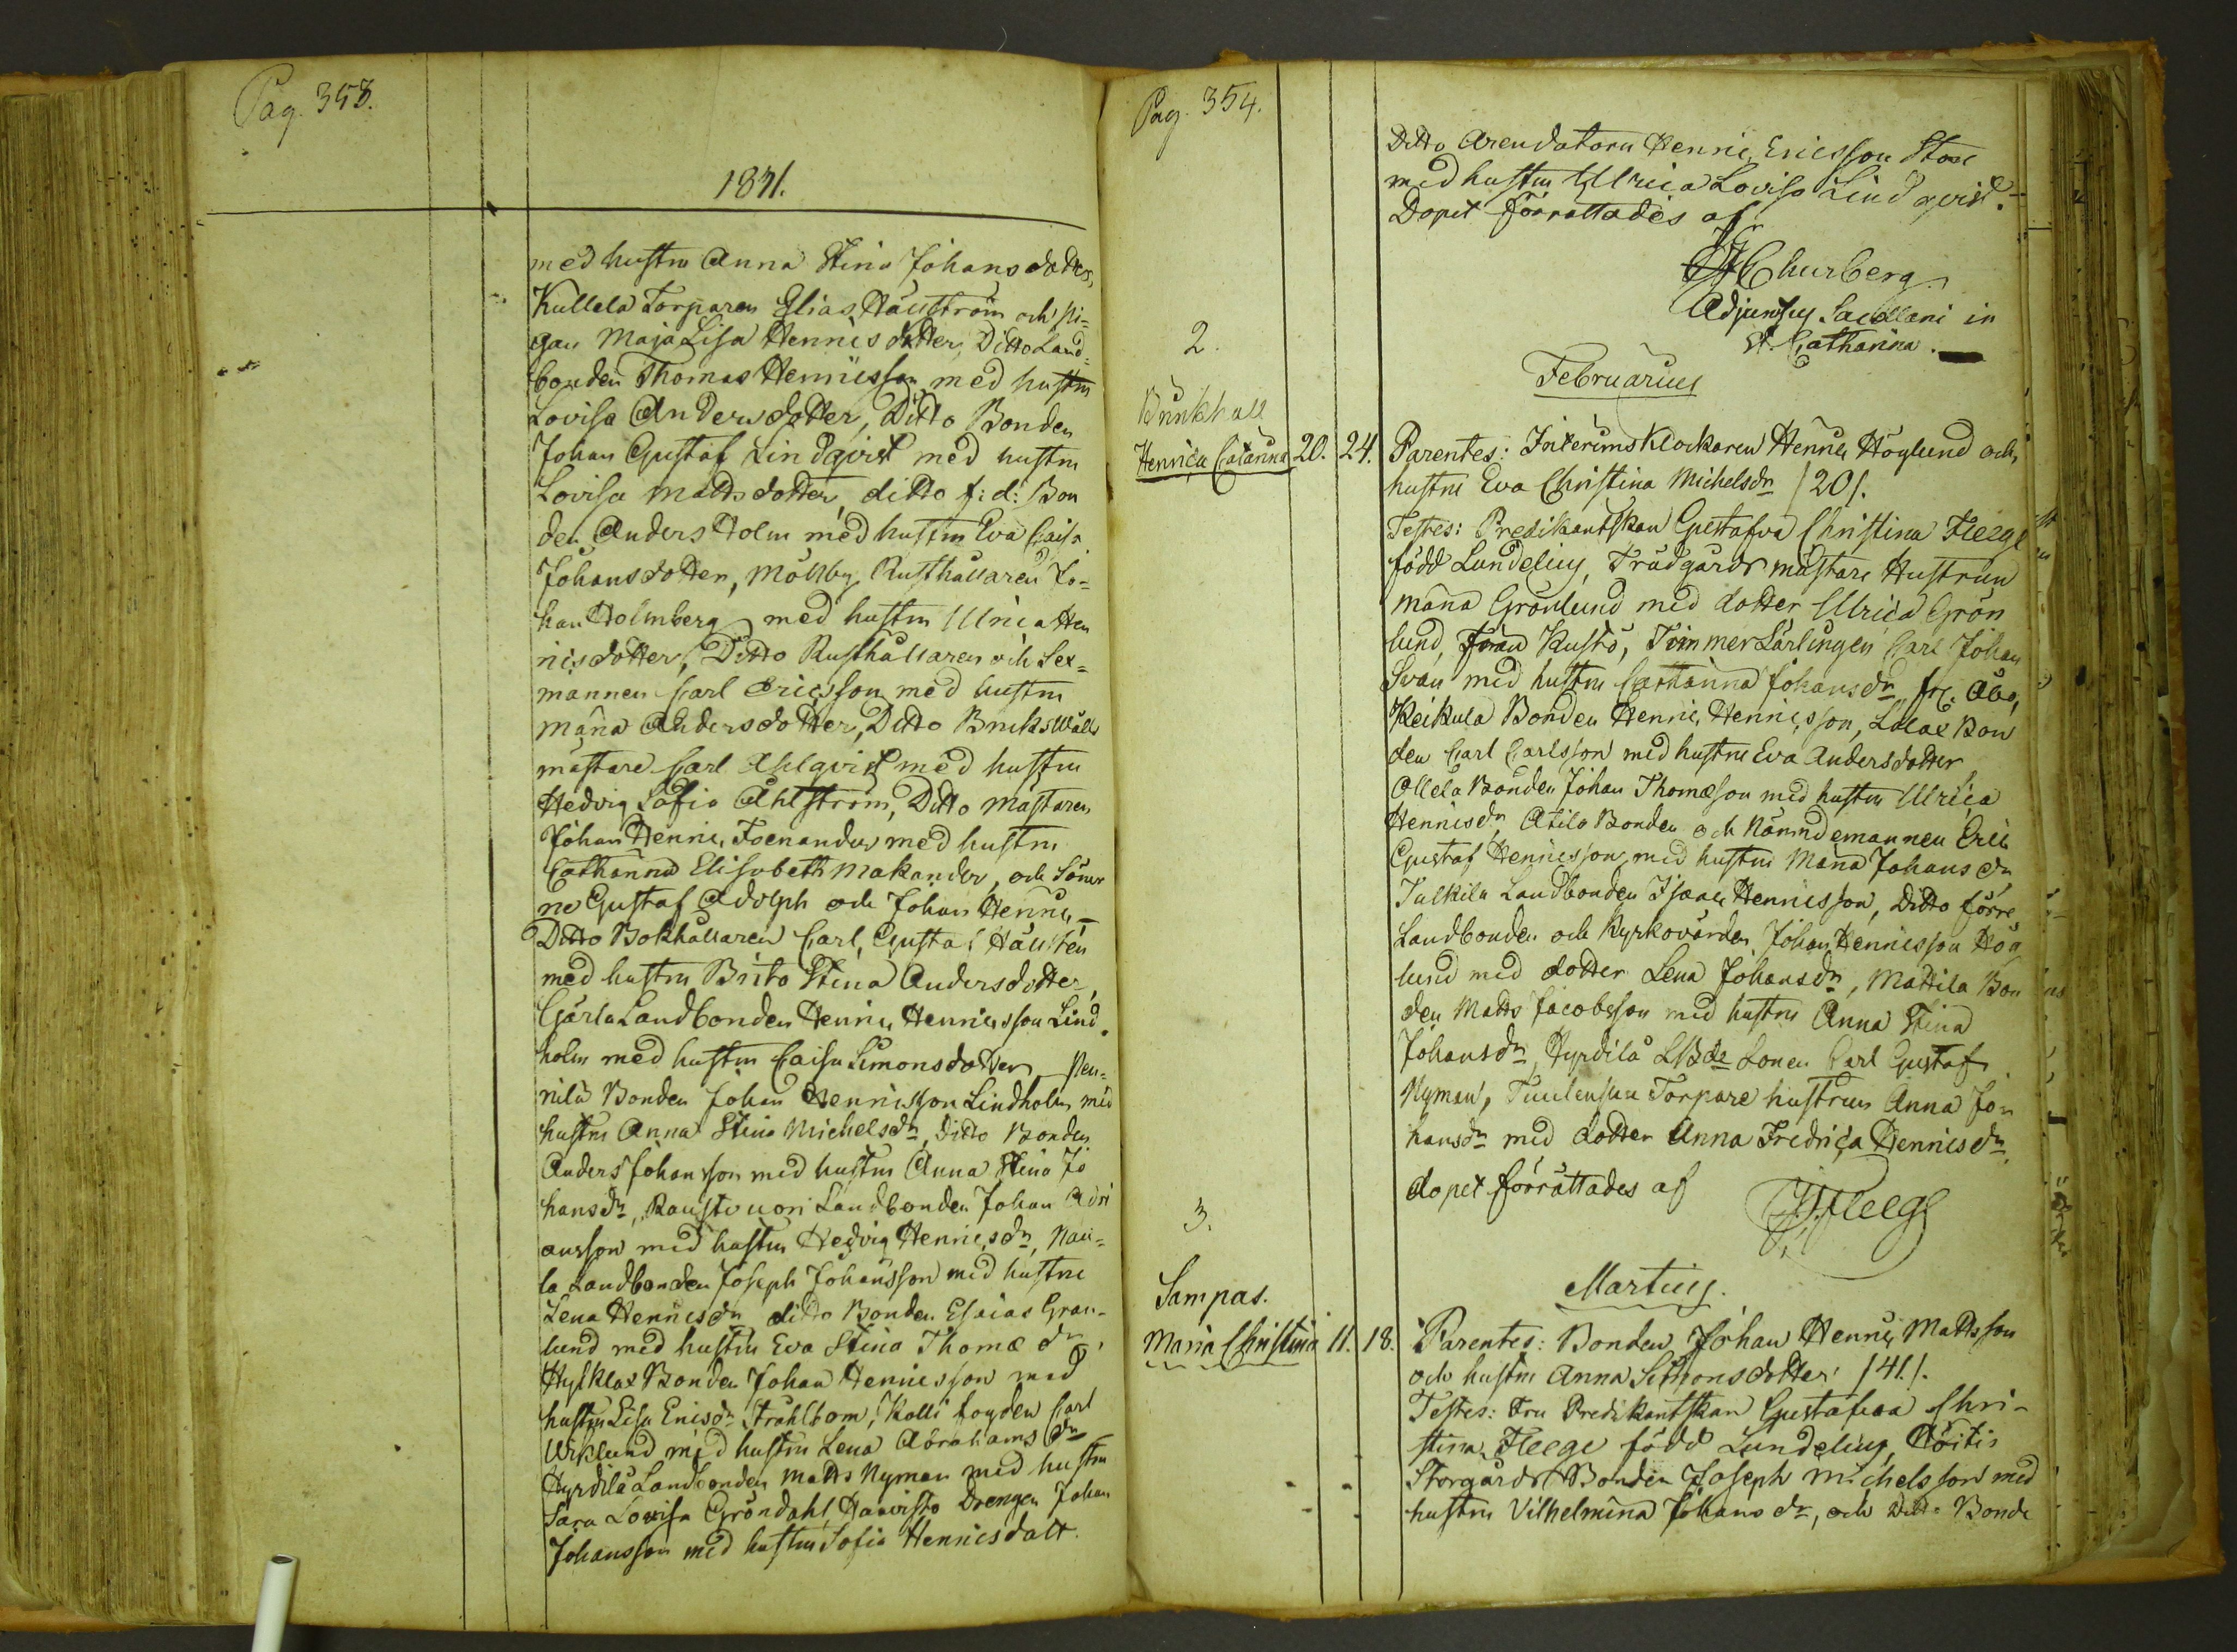 Pag. 353.
1841.
med hustru Anna Stina Johansdotter,
Kullela Torparen Elias Häuström och pi=
gan Maja Lisa Henricsdotter, Ditto Land=
bonden Thomas Henricsson med hustru
Lovisa Andersdotter, Ditto Bonden
Johan Gustaf Lindqvist med hustru
Lovisa Mattsdotter, ditto f: d: Bon
den Anders Holm med hustru Eva Caisa
Johansdotter, Möllby Rusthållaren Jo=
han Holmberg med hustru Ulrica Hen
ricsdotter, Ditto Rusthållaren och Sex=
mannen Carl Ericsson med hustru
Mana Andersdotter, Ditto Bruks
mästare Carl Ahlqvist med hustru
Hedvig Sofia Åhlström, Ditto Mästaren
Johan Henric Foenander med hustru
Catharina Elisabeth Makander, och Söner
ne Gustaf Adolph och Johan Henric,
Ditto Bokhållaren Carl Gustaf Hällsten
med hustru Brita Stina Andersdotter,
Gärla Landbonden Henric Henricsson Lind=
holm med hustru Caisa Simonsdotter, Pen=
nilä Bonden Johan Henricsson Lindholm med
hustru Anna Stina Michelsdr, Ditto Bonden
Anders Johansson med hustru Anna Stina Jo
hansdr, Raustvuori Landbonden Johan Adri
ansson med hustru Hedvig Henricsdr, Nau=
la Landbonden Joseph Johansson med hustru
Lena Henricsdr ditto Bonden Esaias Gran=
lund med hustru Eva Stina Thomædr,
Hyflax Bonden Johan Henricsson med
hustru Lisa Ericsdr Stråhlbom, Kolli fogden Carl
Wiklund med hustru Lena Abrahamsdr
Hyrdilä Landbonden Matts Nyman med hustru
Sara Lovisa Gröndahl, Haavisto Drengen Johan
Johansson med hustru Sofia Henricsdott.
Pag. 354.
Ditto Arendatorn Henric Ericsson Stor
med hustru Ullrica Lovisa Lindqvist.
Dopet förrättades af
Churberg
Adjunctus Sacellani in
St. Catharina.
2.
Februarius
Runkhall
Henrica Catarina 20. 24. Parentes: Interims Klockaren Henric Höglund och
hustru Eva Christina Michelsdr /20/.
Testes: Predikantskan Gustafva Christina Fleege
född Lundelius, Trädgårds mästare Hustrun
Mana Grönlund med dotter Ulrica Grön
lund, från Kustö, Timmer Lärlingen Carl Johan
Svan med hustru Catharina Johansdr, fr. Åbo,
Keikula Bonden Henric Henricsson, Lalax Bon
den Carl Carlsson med hustru Eva Andersdotter
Ollela Bonden Johan Thomæson med hustru Ulrica
Henricsdr, Atila Bonden och Nämndemannen Eric
Gustaf Henricsson med hustru Mana Johansdr
Julkila Landbonden Isaac Henricsson, Ditto förre
Landbonden och Kyrkovärden Johan Henricsson Hög
lund med dotter Lena Johansdr, Mattila Bon
den Matts Jacobsson med hustru Anna Stina
Johansdr, Hyrdilä LBde Sonen Carl Gustaf
Nyman, Torpare hustrun Anna Jo
hansdr med dotter Anna Fredrica Henricsdr,
dopet förrättades af Fleege
3.
Martius.
Sampas.
Maria Christina 11. 18. Parentes: Bonden Johan Henric Mattsson
och hustru Anna Simonsdotter /41/.
Testes: Fru Predikantskan Gustafva Chri-
stina Fleege född Lundelius, Åvitis
Storgårds Bonden Joseph Michelsson med
hustru Vilhelmina Johansdr, och Ditto Bonde